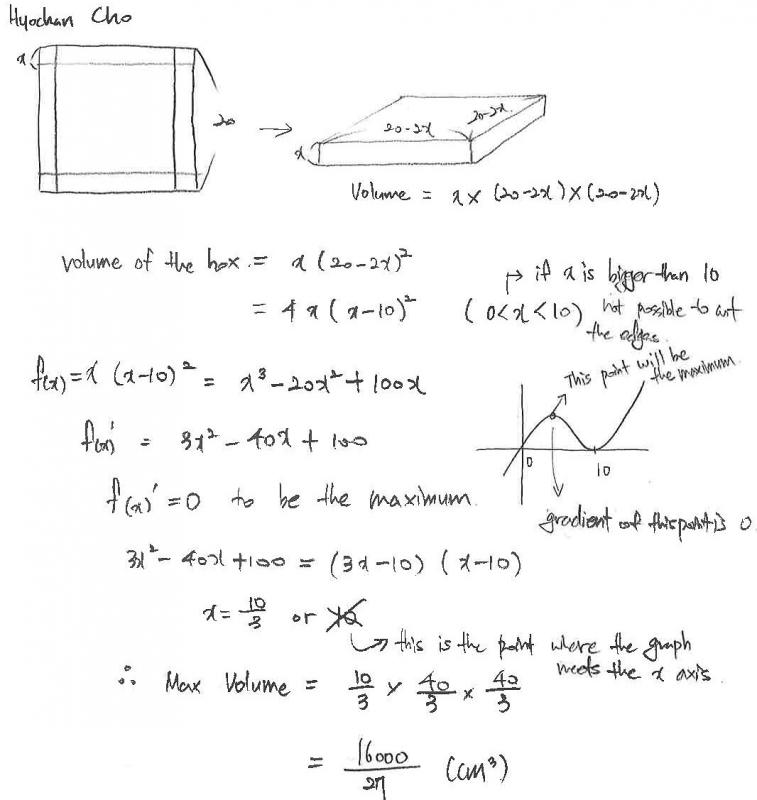 Hyochan Cho
x
20
→
20-2x
20-2x
x
Volume = x × (20-2x) × (20-2x)
volume of the box = x(20-2x)²
= 4x(x-10)² (0<x<10)
↦ if x is bigger than 10
not possible to cut
the edges.
f(x) = x (x-10)² = x³-20x²+100x
f(x)' = 3x²-40x+100
This point will be
the maximum.
0
10
gradient of this point is 0
f(x)' = 0 to be the maximum.
3x²-40x+100 = (3x-10) (x-10)
x = 10/3 or 10
↪ this is the point where the graph
meets the x axis.
∴ Max Volume = 10/3 × 40/3 × 40/3
= 16000/27 (cm³)